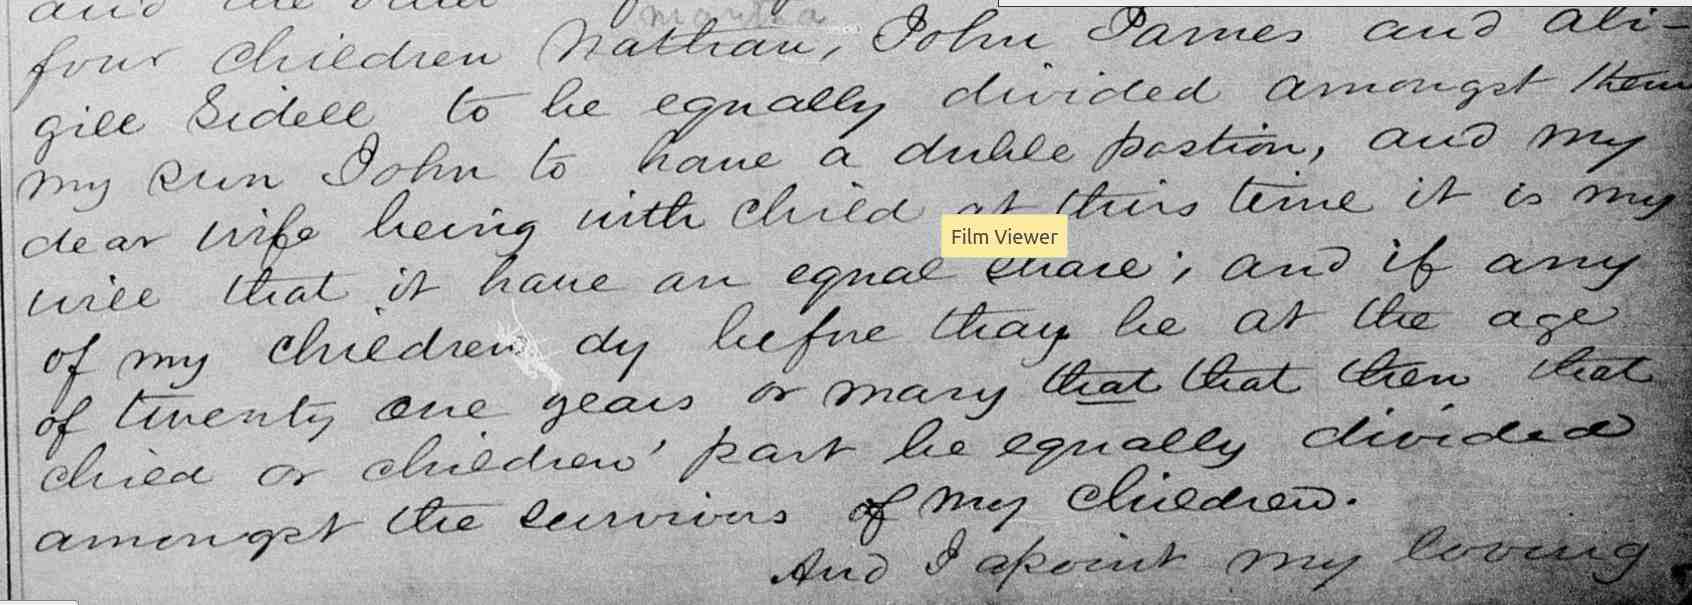 and the other
martha
four children Nathan, John James and abi-
gill Sidell to be equally divided amongst them
my sun John to have a duble postion, and my
dear wife being with child at this time it is my
will that it have an equal share; and if any
of my children dy before thay be at the age
of twenty one years or mary that that then that
child or children' part be equally divided
amongst the survivors of my children.
And I apoint my loving
Film Viewer